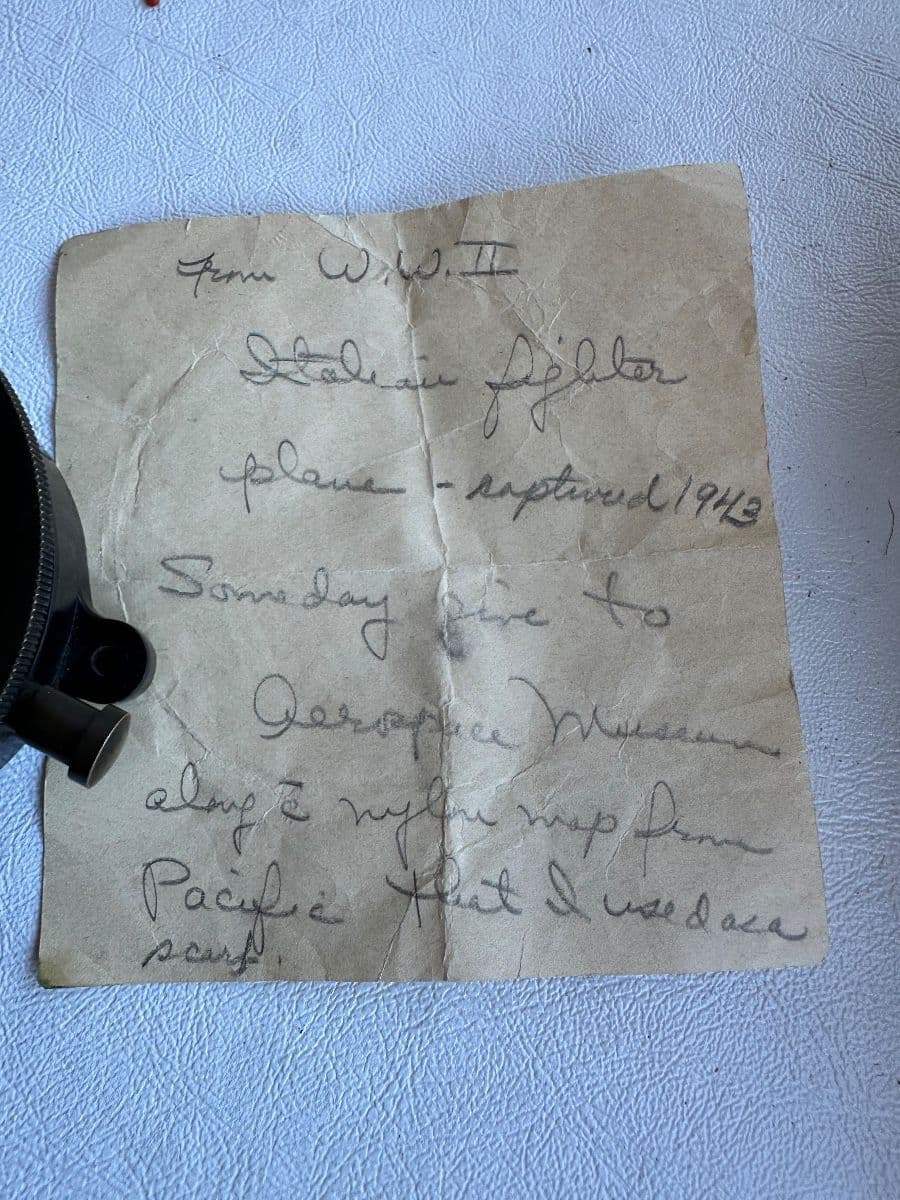 From W.W. II
Italian fighter
plane - captured 1943
Someday give to
Aerospace Museum
along c̄ nylon map from
Pacific that I used as a
scarf.